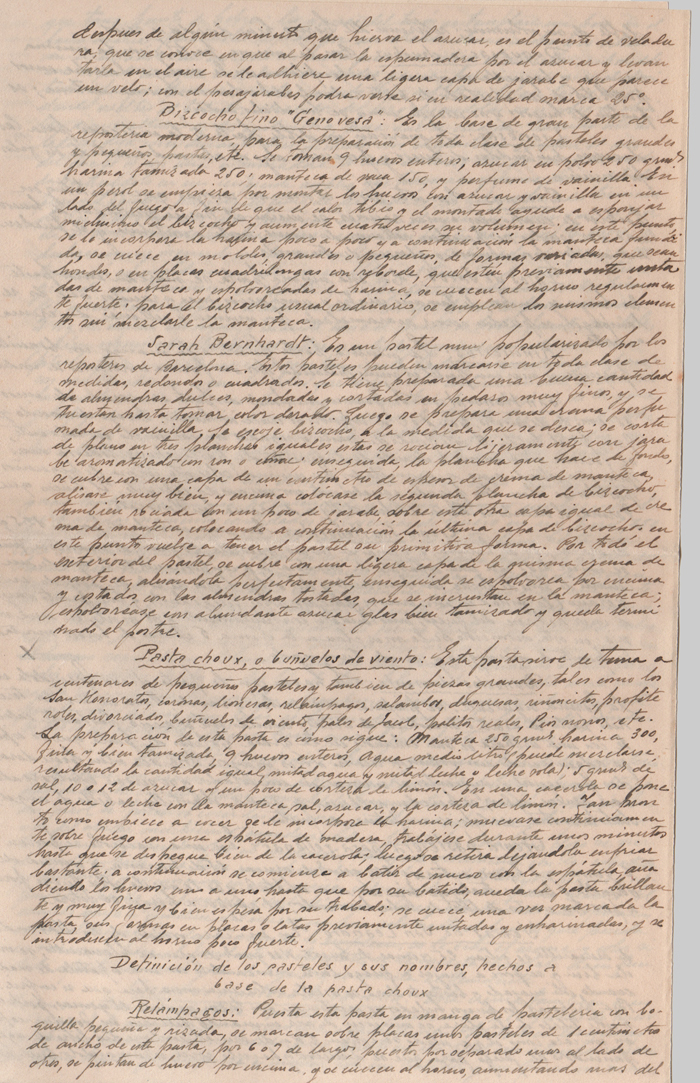 despues de algún minuto que hierva el azucar, es el punto de veladu
ra, que se conoce en que al pasar la espumadera por el azucar y levan
tarla en el aire se le adhiere una ligera capa de jarabe que parece
un velo; con el pesajarabes podra verse si en realidad marca 25º.
Bizcocho fino "Genovesa": Es la base de gran parte de la
reposteria moderna, para la preparación de toda clase de pasteles grandes
y pequeños, pastas, etc. Se toman 9 huevos enteros, azucar en polvo 250 grms
harina tamizada 250; manteca de vaca 150, y perfume de vainilla. En
un perol se empieza por montar los huevos con azucar y vainilla en un
lado del fuego a fin de que el calor tibio y el montado ayude a esponjar
muchisimo el bizcocho y aumente cuatro veces su volumen; en este punto
se le incorpora la harina poco a poco y a continuación la manteca fundi
da, se cuece en moldes, grandes o pequeños, de formas variadas, que sean
hondos, o en placas cuadrilongas con reborde, que esten previamente unta
das de manteca y espolvoreadas de harina, se cuecen al horno regularmen
te fuerte. para el bizcocho usual ordinario, se emplean los mismos elemen
tos sin mezclarle la manteca.
Sarah Bernhardt: Es un pastel muy popularizado por los
reposteros de Barcelona. Estos pasteles pueden marcarse en toda clase de
medidas, redondo o cuadrados. Se tiene preparada una buena cantidad
de almendras dulces, mondadas y cortadas en pedazos muy finos, y se
tuestan hasta tomar color dorado. Luego se prepara una crema perfu
mada de vainilla. Se escoje bizcocho, a la medida que se desea; se corta
de plano en tres planchas iguales estas se rocian ligeramente con jara
be aromatizado con ron o coñac; enseguida, la plancha que hace de fondo,
se cubre con una capa de un centimetro de espesor de crema de manteca,
alisase muy bien, y encima colocase la segunda plancha de bizcocho,
también rociada con un poco de jarabe sobre este otra capa igual de cre
ma de manteca, colocando a continuación la última capa de bizcocho en
este punto vuelve a tener el pastel su primitiva forma. Por todo el
exterior del pastel, se cubre con una ligera capa de la misma crema de
manteca, alisándola perfectamente, enseguida se espolvorea por encima
y costados con las almendras tostadas, que se incrustan en la manteca;
espolvorease con abundante azucar glas bien tamizado y queda termi
nado el postre.
Pasta choux, o buñuelos de viento: Esta pasta sirve de tema a
centenares de pequeños pasteles y tambien de piezas grandes, tales como los
San Honoratos, coronas, lionesas, relampagos, salambos, duquesas, riñoncitos, profite
roles, divorciado, buñuelos de viento, palos de Jacob, palitos reales, Pio nonos, etc.
La preparación de esta pasta es cómo sigue: Manteca 250 grms harina 300,
fina y bien tamizada 9 huevos enteros, agua medio litro (puede mezclarse,
resultando la cantidad igual, mitad agua y mitad leche o leche sola); 5 grms de
sal, 10 o 12 de azucar y un poco de corteza de limón. En una cacerola se pone
el agua o leche con la manteca, sal, azucar, y la corteza de limon. Tan pron
to como empiece a cocer se le incorpora la harina; muevase continuamen
te sobre fuego con una espátula de madera trabájese durante unos minutos
hasta que se despegue bien de la cacerola; luego se retira dejandola enfriar
bastante. a continuación se comienza a batir de nuevo con la espátula aña
diendo los huevos uno a uno hasta que por su batido, queda la pasta brillan
te y muy fina y bien espesa por su trabado; se cuece una vez marcada la
pasta, sus formas en placas o latas previamente untadas y enharinadas, y se
introducen al horno poco fuerte.
Definición de los pasteles y sus nombres, hechos a
base de la pasta choux
Relámpagos: Puesta esta pasta en manga de pasteleria con bo-
quilla pequeña y rizada, se marcan sobre placas unos pasteles de 1 centimetro
de ancho de esta pasta, por 6 o 7 de largo, puestos por separado unos al lado de
otros, se pintan de huevo por encima, y se cuecen al horno, aumentando mas del